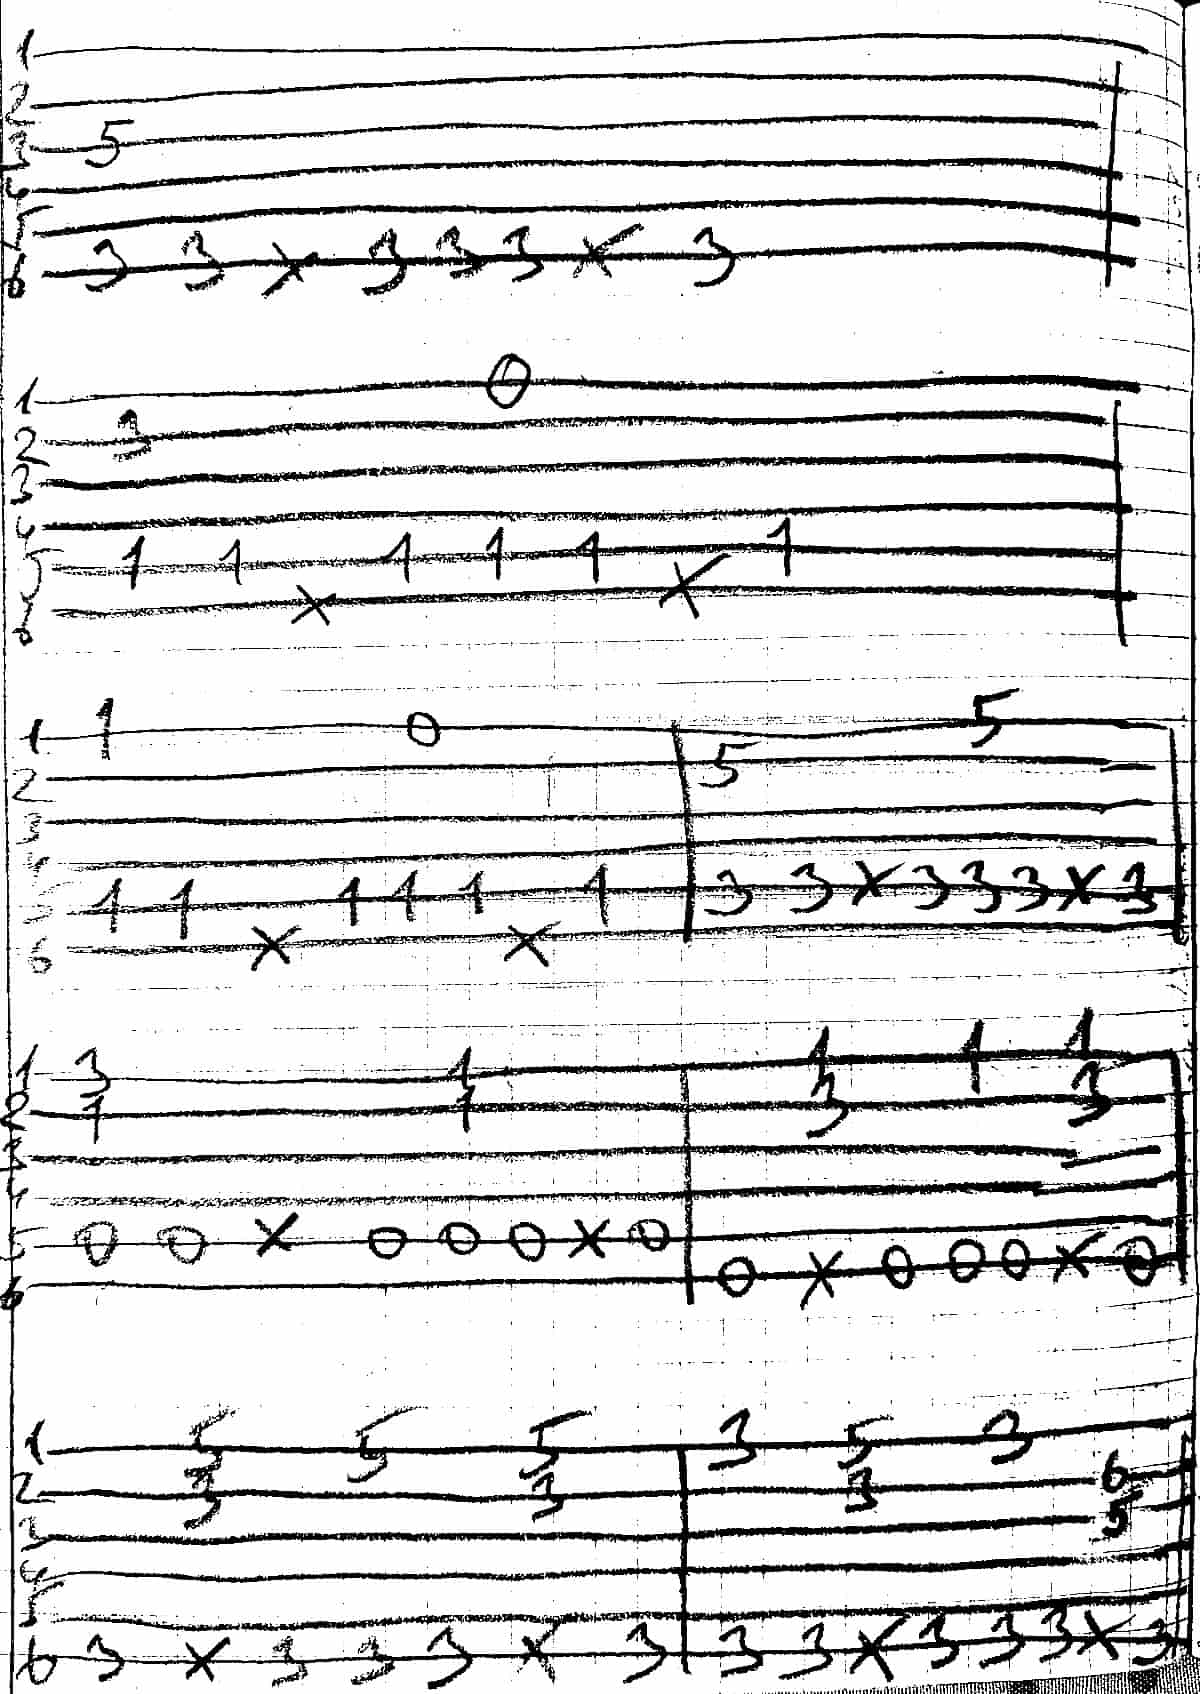 1
2
3 5
4
5
6 3 3 X 3 3 3 X 3
1 0
2 3
3
4
5 1 1 1 1 1 1
6 X X
1 1 0 5
2 5
3
4
5 1 1 1 1 1 1 3 3 X 3 3 3 X 3
6 X X
1 3 1 1 1 1
2 1 1 3 3
3
4
5 0 0 X 0 0 0 X 0
6 0 X 0 0 0 X 0
1 5 5 5 3 5 3
2 3 3 3 6
3 5
4
5
6 3 X 3 3 3 X 3 3 3 X 3 3 3 X 3